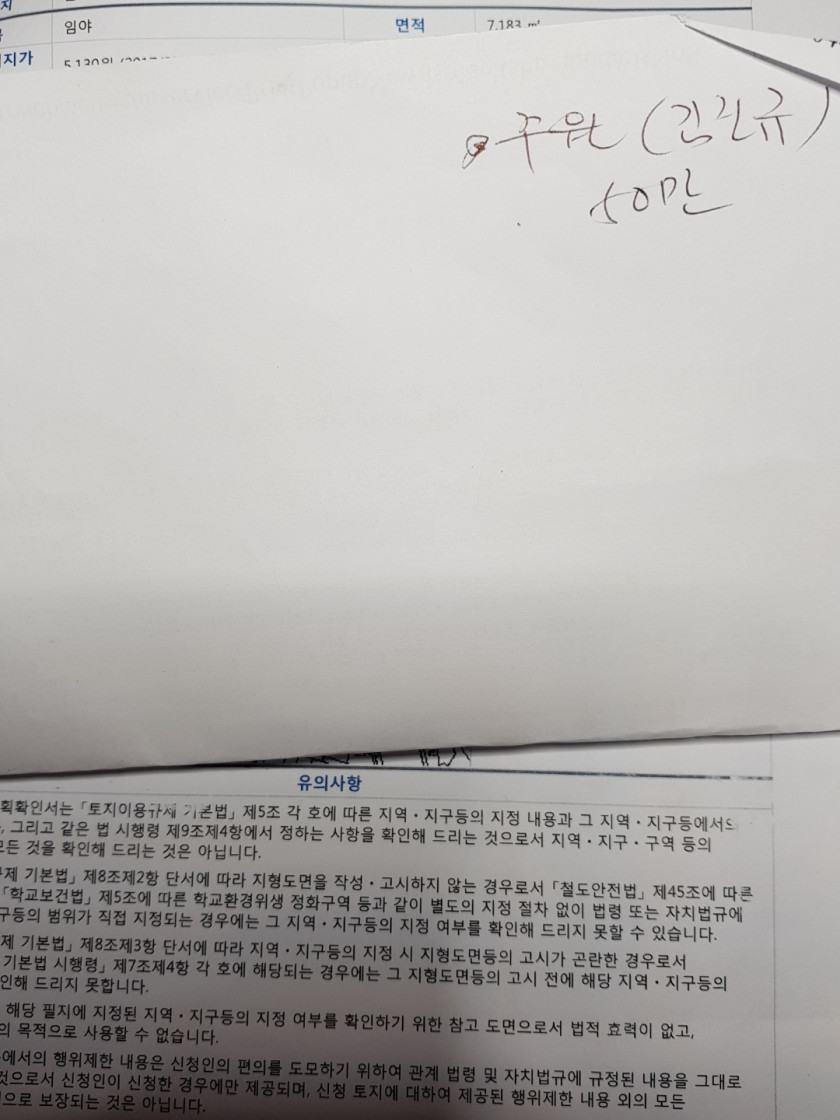 지
임야 면적 7,183 ㎡
지가 5,130원
주원 (김진규)
50만
유의사항
획확인서는 「토지이용규제 기본법」 제5조 각 호에 따른 지역・지구등의 지정 내용과 그 지역・지구등에서의
, 그리고 같은 법 시행령 제9조제4항에서 정하는 사항을 확인해 드리는 것으로서 지역・지구・구역 등의
모든 것을 확인해 드리는 것은 아닙니다.
규제 기본법」 제8조제2항 단서에 따라 지형도면을 작성・고시하지 않는 경우로서 「철도안전법」 제45조에 따른
「학교보건법」 제5조에 따른 학교환경위생 정화구역 등과 같이 별도의 지정 절차 없이 법령 또는 자치법규에
구등의 범위가 직접 지정되는 경우에는 그 지역・지구등의 지정 여부를 확인해 드리지 못할 수 있습니다.
제 기본법」 제8조제3항 단서에 따라 지역・지구등의 지정 시 지형도면등의 고시가 곤란한 경우로서
기본법 시행령」 제7조제4항 각 호에 해당되는 경우에는 그 지형도면등의 고시 전에 해당 지역・지구등의
인해 드리지 못합니다.
해당 필지에 지정된 지역・지구등의 지정 여부를 확인하기 위한 참고 도면으로서 법적 효력이 없고,
의 목적으로 사용할 수 없습니다.
에서의 행위제한 내용은 신청인의 편의를 도모하기 위하여 관계 법령 및 자치법규에 규정된 내용을 그대로
것으로서 신청인이 신청한 경우에만 제공되며, 신청 토지에 대하여 제공된 행위제한 내용 외의 모든
으로 보장되는 것은 아닙니다.